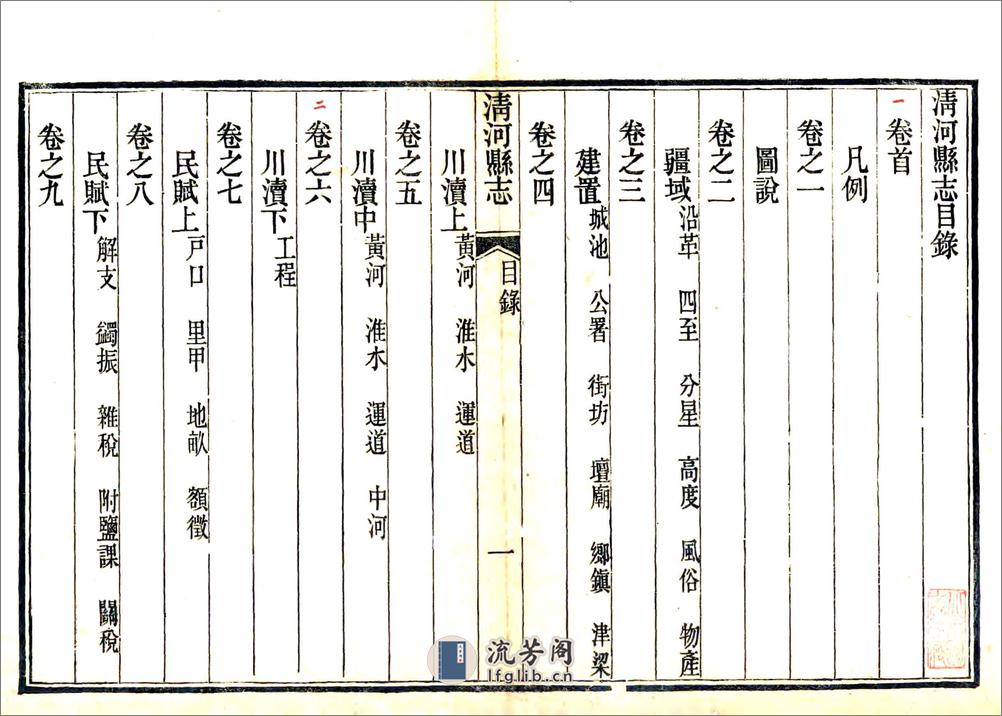 清河縣志目錄
一
卷首
凡例
卷之一
圖說
卷之二
疆域 沿革 四至 分星 高度 風俗 物產
卷之三
建置 城池 公署 街坊 壇廟 鄉鎮 津梁
卷之四
清河縣志 目錄 一
川瀆上 黃河 淮水 運道
卷之五
川瀆中 黃河 淮水 運道 中河
二
卷之六
川瀆下 工程
卷之七
民賦上 戸口 里甲 地畝 額徵
卷之八
民賦下 解支 蠲振 雜稅 附鹽課 關稅
卷之九
流芳阁
lfglib.cn